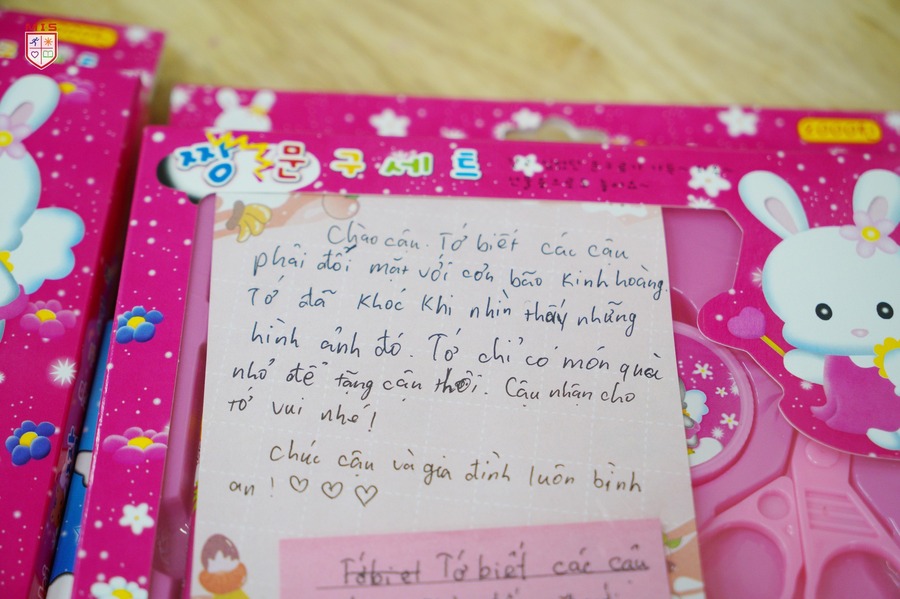 HIS
짱 문구세트
Chào cậu. Tớ biết các cậu
phải đối mặt với cơn bão kinh hoàng.
Tớ đã khóc khi nhìn thấy những
hình ảnh đó. Tớ chỉ có món quà
nhỏ để tặng cậu thôi. Cậu nhận cho
tớ vui nhé!
Chúc cậu và gia đình luôn bình
an! ♡♡♡
Tớ biet Tớ biết các cậu